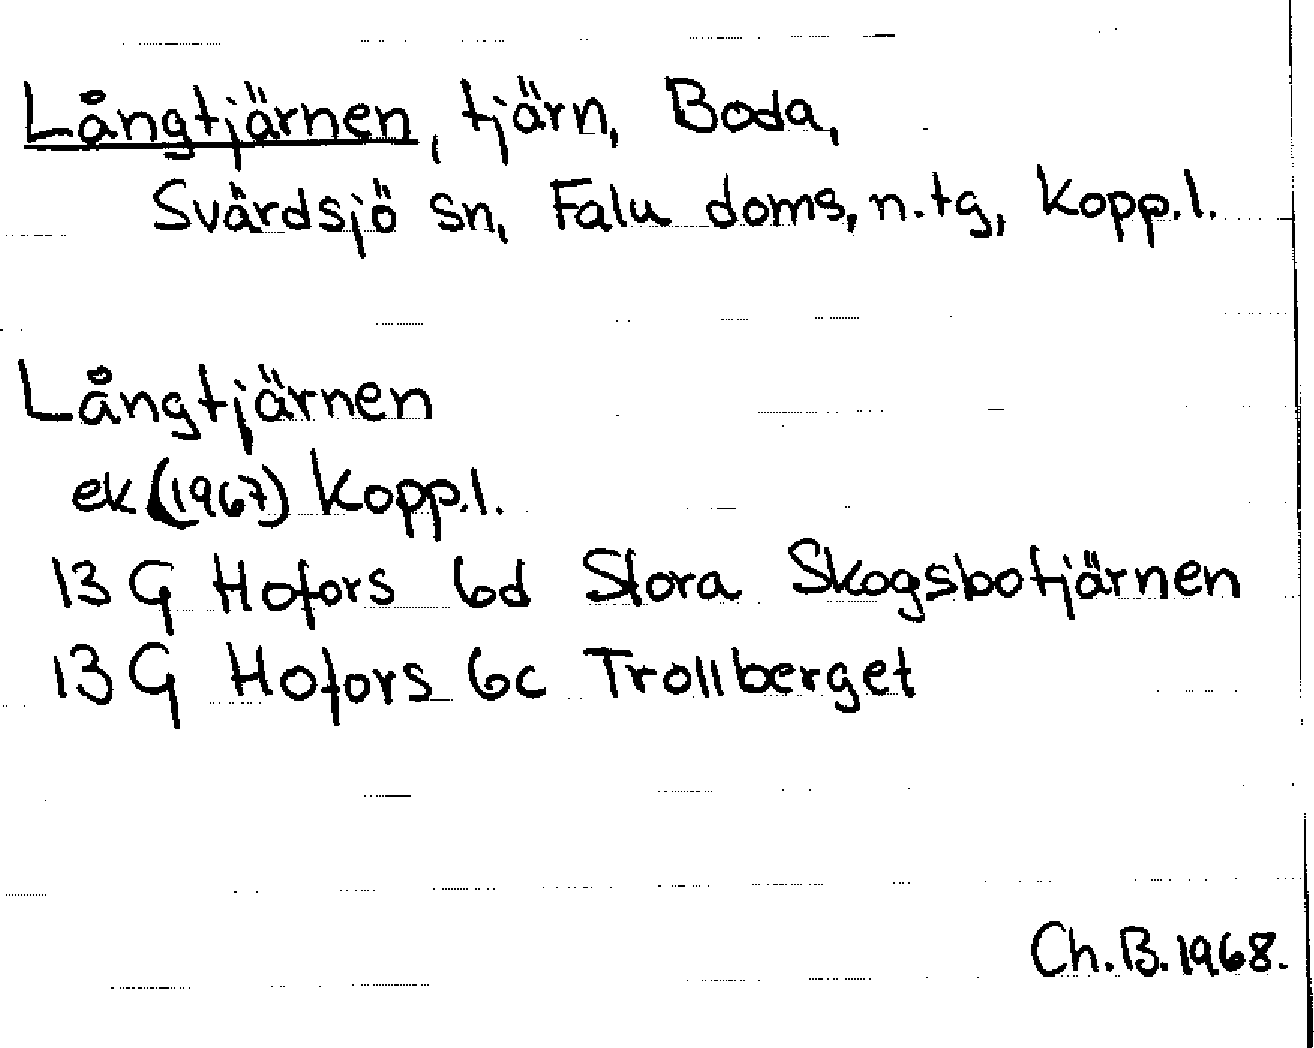 Långtjärnen, tjärn, Boda,
Svärdsjö sn, Falu doms, n.tg, Kopp.l.
Långtjärnen
ek (1967) Kopp.l.
13 G Hofors 6d Stora Skogsbotjärnen
13 G Hofors 6c Trollberget
Ch.B.1968.